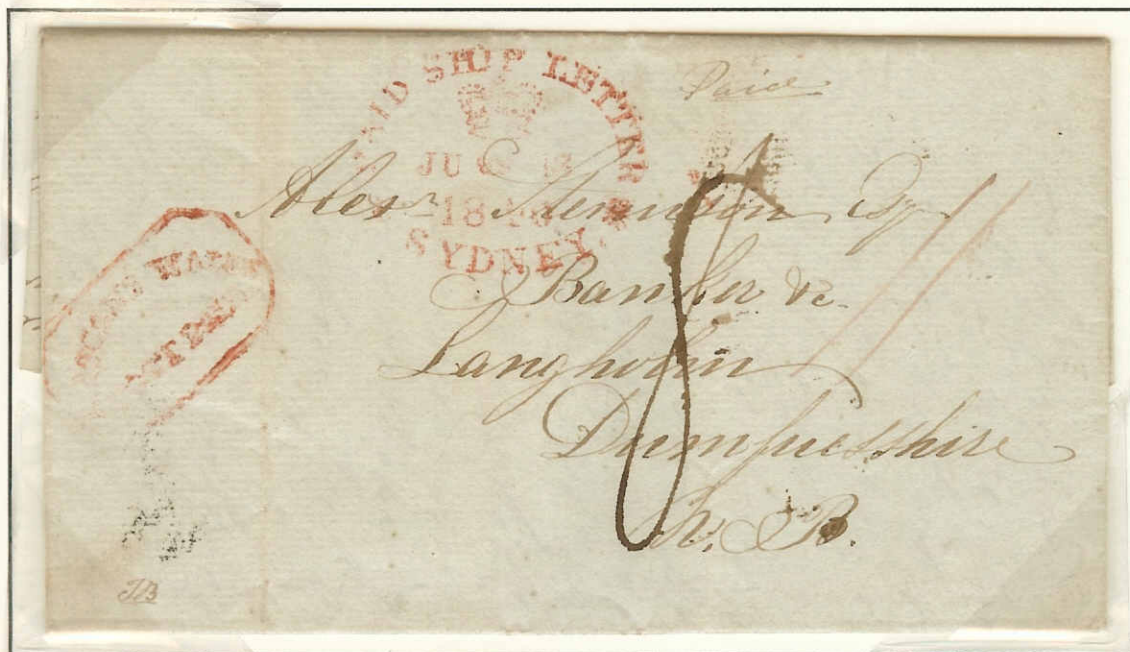 Paid
PAID SHIP LETTER
JU
18
SYDNEY
Alexr Stevenson Esqr
Banker &c.
Langholm
Dumfriesshire
N. B.
8
JB